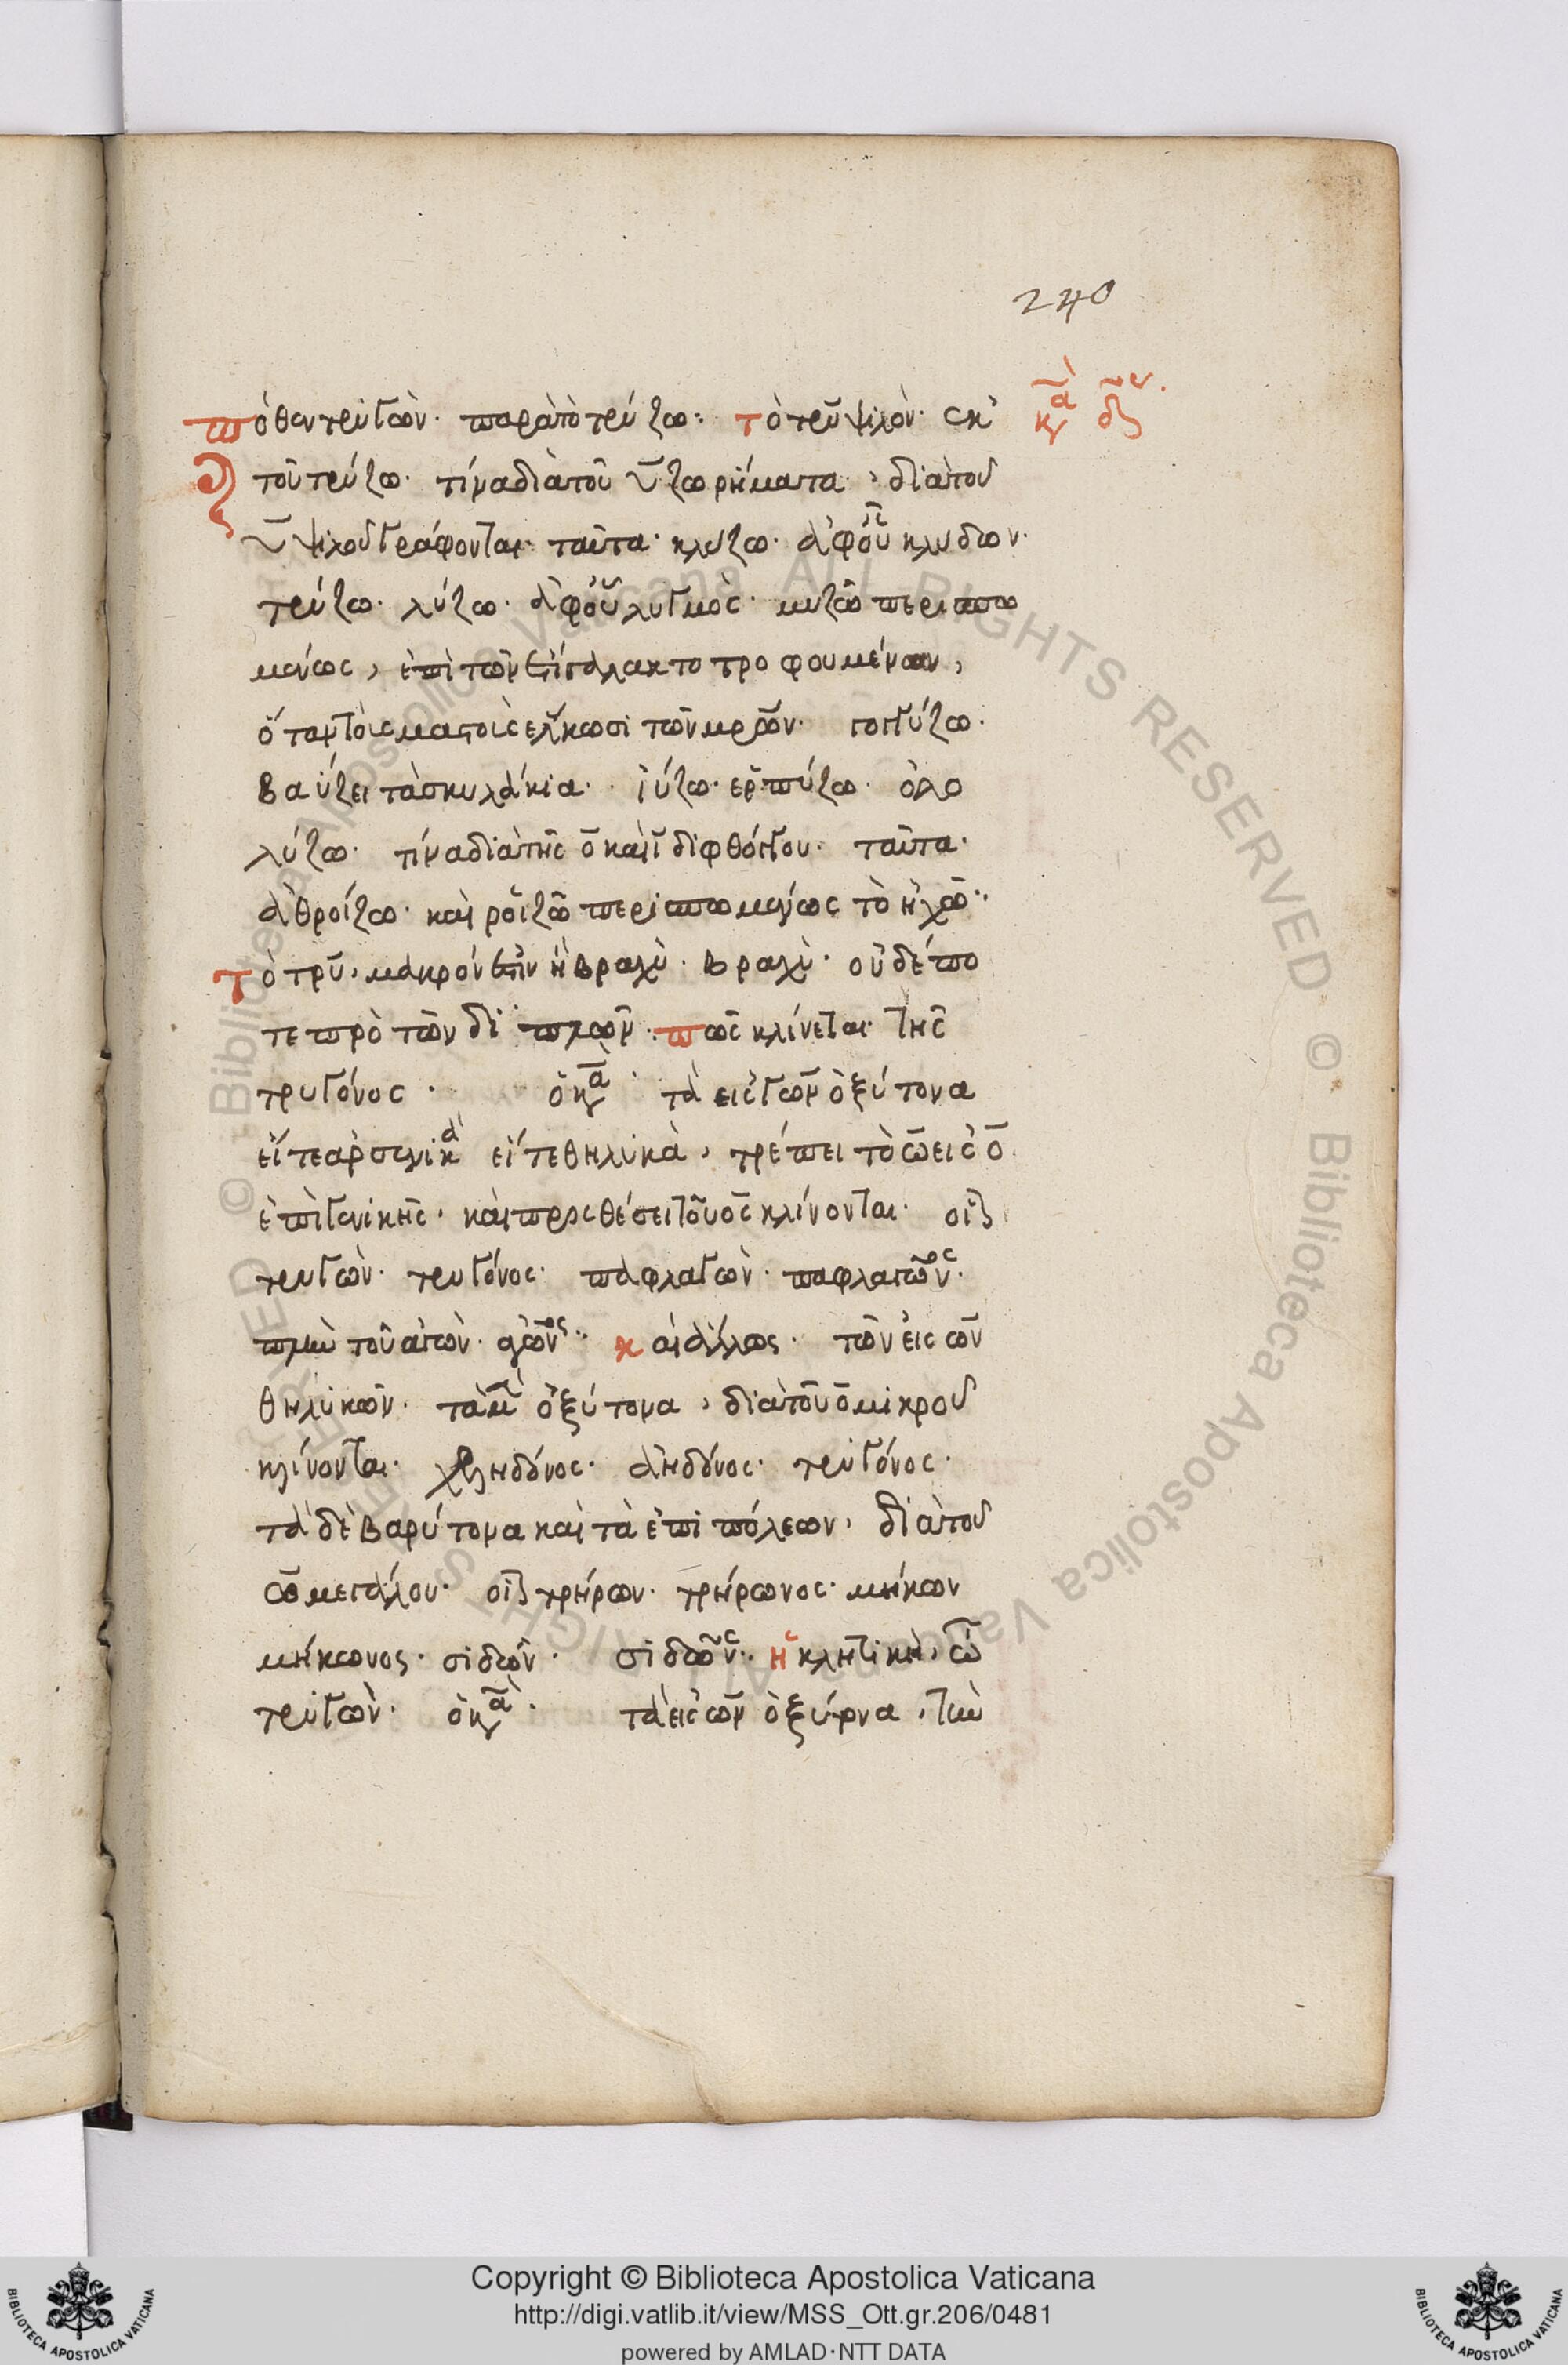 240
πόθεν τρυγών· παρὰ τὸ τρύζω: τὸ τρῦ ψιλόν· ἐκ κα
τοῦ τρύζω· τίνα διὰ τοῦ υζω ρήματα, διὰ τοῦ
υ ψιλοῦ γράφονται· ταῦτα· κλύζω· ἀφ' οῦ κλύδων·
τρύζω· λύζω· ἀφ' οὗ λυγμός· μυζῶ περισπω
μένως, ἐπὶ τῶν ἔτι γαλακτοτροφουμένων,
ὅταν τοῖς μαστοῖς ἕλκωσι τῶν μρῶν· γογγύζω·
βαΰζει τὰ σκυλάκια· ἰύζω· ἑρπύζω· ὀλο
λύζω· τίνα διὰ τῆς ο καὶ ι διφθόγγου· ταῦτα·
ἀθροίζω· καὶ ροιζῶ περισπωμένως τὸ ἠχῶ:
τὸ τρυ, μακρόν ἐστιν ἢ βραχύ· βραχύ· οὐδέπο
τε πρὸ τῶν διπλῶν· πῶς κλίνεται τῆς
τρυγόνος· ὁ κα τὰ εἰς γων ὀξύτονα
εἴτε ἀρσενικὰ εἴτε θηλυκὰ, τρέπει τὸ ω εἰς ο
ἐπὶ γενικῆς· καὶ προσθέσει τοῦ ος κλίνονται· οἷον
τρυγών· τρυγόνος· παφλαγών· παφλαγόνος·
πλὴν τοῦ ἀγών· ἀγῶνος: καὶ ἄλλως· τῶν εἰς ων
θηλυκῶν· τὰ μὲν ὀξύτονα, διὰ τοῦ ο μικροῦ
κλίνονται· χελιδόνος· ἀηδόνος· τρυγόνος·
τὰ δὲ βαρύτονα καὶ τὰ ἐπὶ πόλεων, διὰ τοῦ
ω μεγάλου· οἷον τρήρων· τρήρωνος· μήκων
μήκωνος· σιδών· σιδῶνος: ἡ κλητικὴ, ὦ
τρυγών· ὁ κα· τὰ εἰς ων ὀξύτονα, τὴν
Copyright © Biblioteca Apostolica Vaticana
http://digi.vatlib.it/view/MSS_Ott.gr.206/0481
powered by AMLAD·NTT DATA
BIBLIOTECA APOSTOLICA VATICANA
BIBLIOTECA APOSTOLICA VATICANA